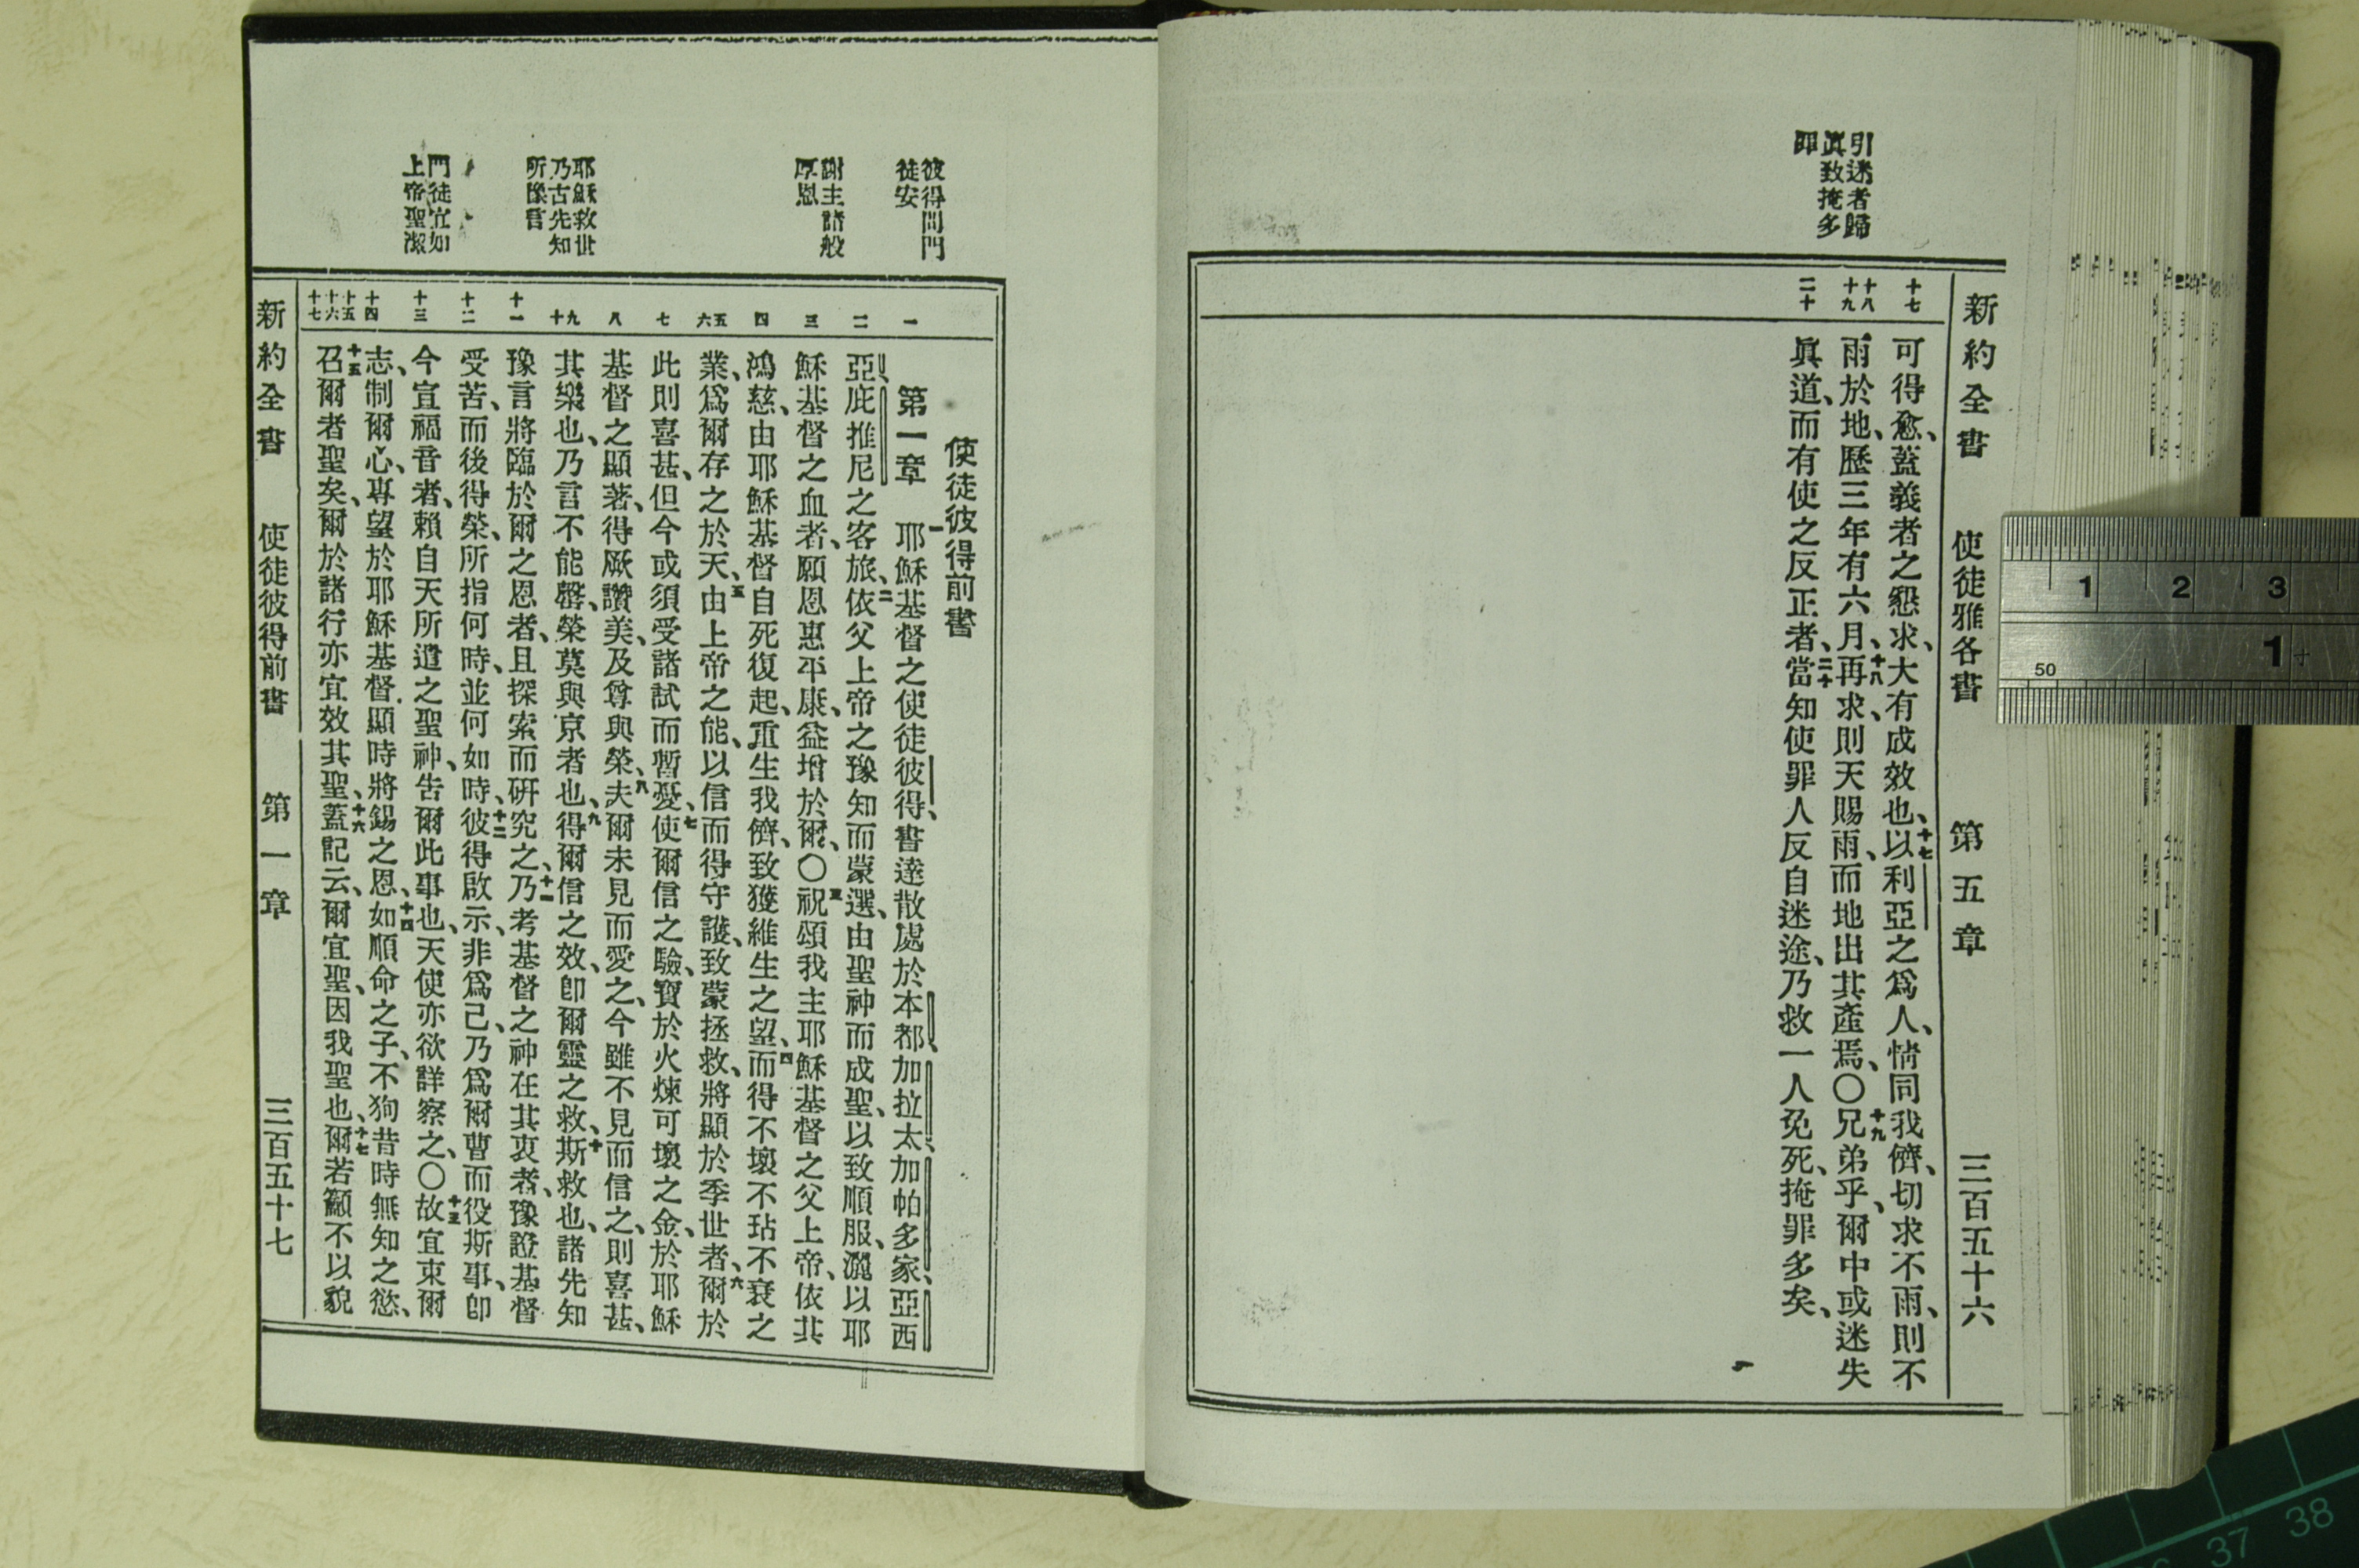 新約全書 使徒雅各書 第五章 三百五十六
引迷者歸
眞致掩多
十七
十八
十九
二十
可得愈、蓋義者之懇求、大有成效也、十七以利亞之爲人、情同我儕、切求不雨、則不
雨於地、歷三年有六月、十八再求、則天賜雨、而地出其產焉、〇十九兄弟乎、爾中或迷失
眞道、而有使之反正者、二十當知使罪人反自迷途、乃救一人免死、掩罪多矣、
彼得問門
徒安
謝主諸般
厚恩
耶穌救世
乃古先知
所豫言
門徒宜如
上帝聖潔
一
二
三
四
五
六
七
八
九
十
十一
十二
十三
十四
十五
十六
十七
使徒彼得前書
第一章 一耶穌基督之使徒彼得、書達散處於本都、加拉太、加帕多家、亞西
亞、庇推尼之客旅、二依父上帝之豫知而蒙選、由聖神而成聖、以致順服、灑以耶
穌基督之血者、願恩惠平康、益增於爾、〇三祝頌我主耶穌基督之父上帝、依其
鴻慈、由耶穌基督自死復起、重生我儕、致獲維生之望、四而得不壞不玷不衰之
業、爲爾存之於天、五由上帝之能、以信而得守護、致蒙拯救、將顯於季世者、六爾於
此則喜甚、但今或須受諸試而暫憂、七使爾信之驗、寶於火煉可壞之金、於耶穌
基督之顯著、得厥讚美、及尊與榮、八夫爾未見而愛之、今雖不見而信之、則喜甚、
其樂也、乃言不能罄、榮莫與京者也、九得爾信之效、卽爾靈之救、十斯救也、諸先知
豫言將臨於爾之恩者、且探索而硏究之、十一乃考基督之神在其衷者、豫證基督
受苦、而後得榮、所指何時、並何如時、十二彼得啟示、非爲己、乃爲爾曹而役斯事、卽
今宣福音者、賴自天所遣之聖神、告爾此事也、天使亦欲詳察之、〇十三故宜束爾
志、制爾心、專望於耶穌基督顯時將錫之恩、十四如順命之子、不狥昔時無知之慾、
十五召爾者聖矣、爾於諸行亦宜效其聖、十六蓋記云、爾宜聖、因我聖也、十七爾若籲不以貌
新約全書 使徒彼得前書 第一章 三百五十七
1 2 3
50
1寸
37 38